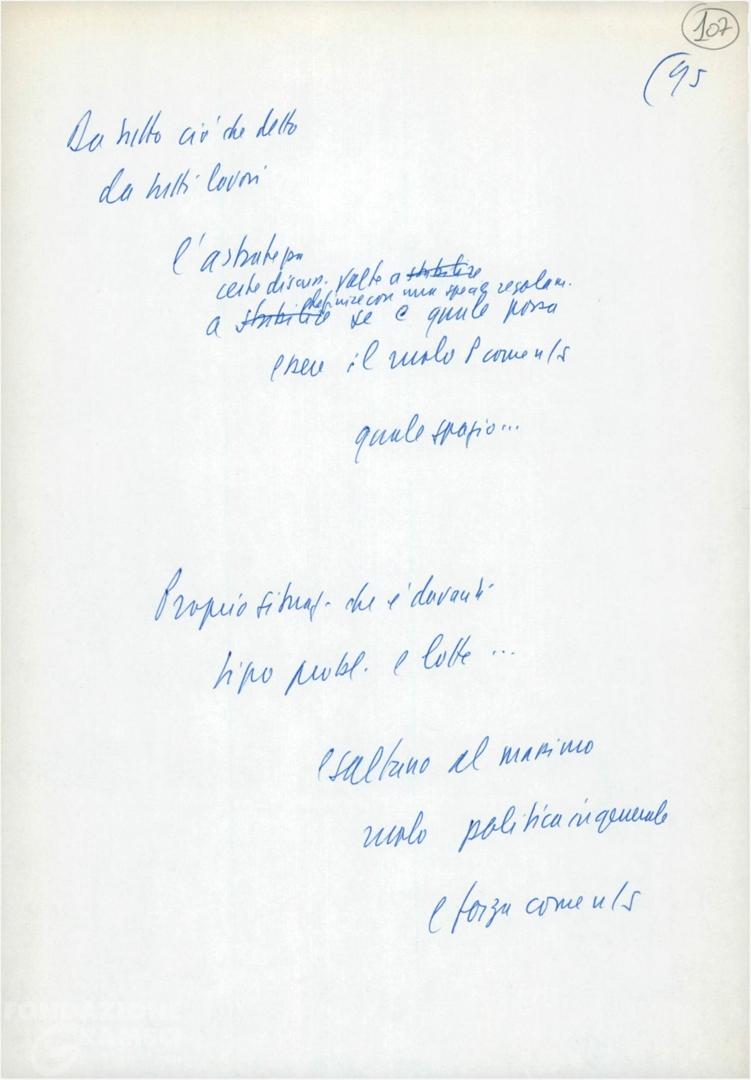 107
(95
Da tutto ciò che detto
da tutti lavori
l'astrattezza
certe discuss. volte a stabilire
definire con una specie regolam.
a stabilire se e quale possa
essere il ruolo P come n/s
quale spazio...
Proprio situaz. che è davanti
tipo probl. e lotte ...
esaltano al massimo
ruolo politica in generale
e forza come n/s
FONDAZIONE
GRAMSCI